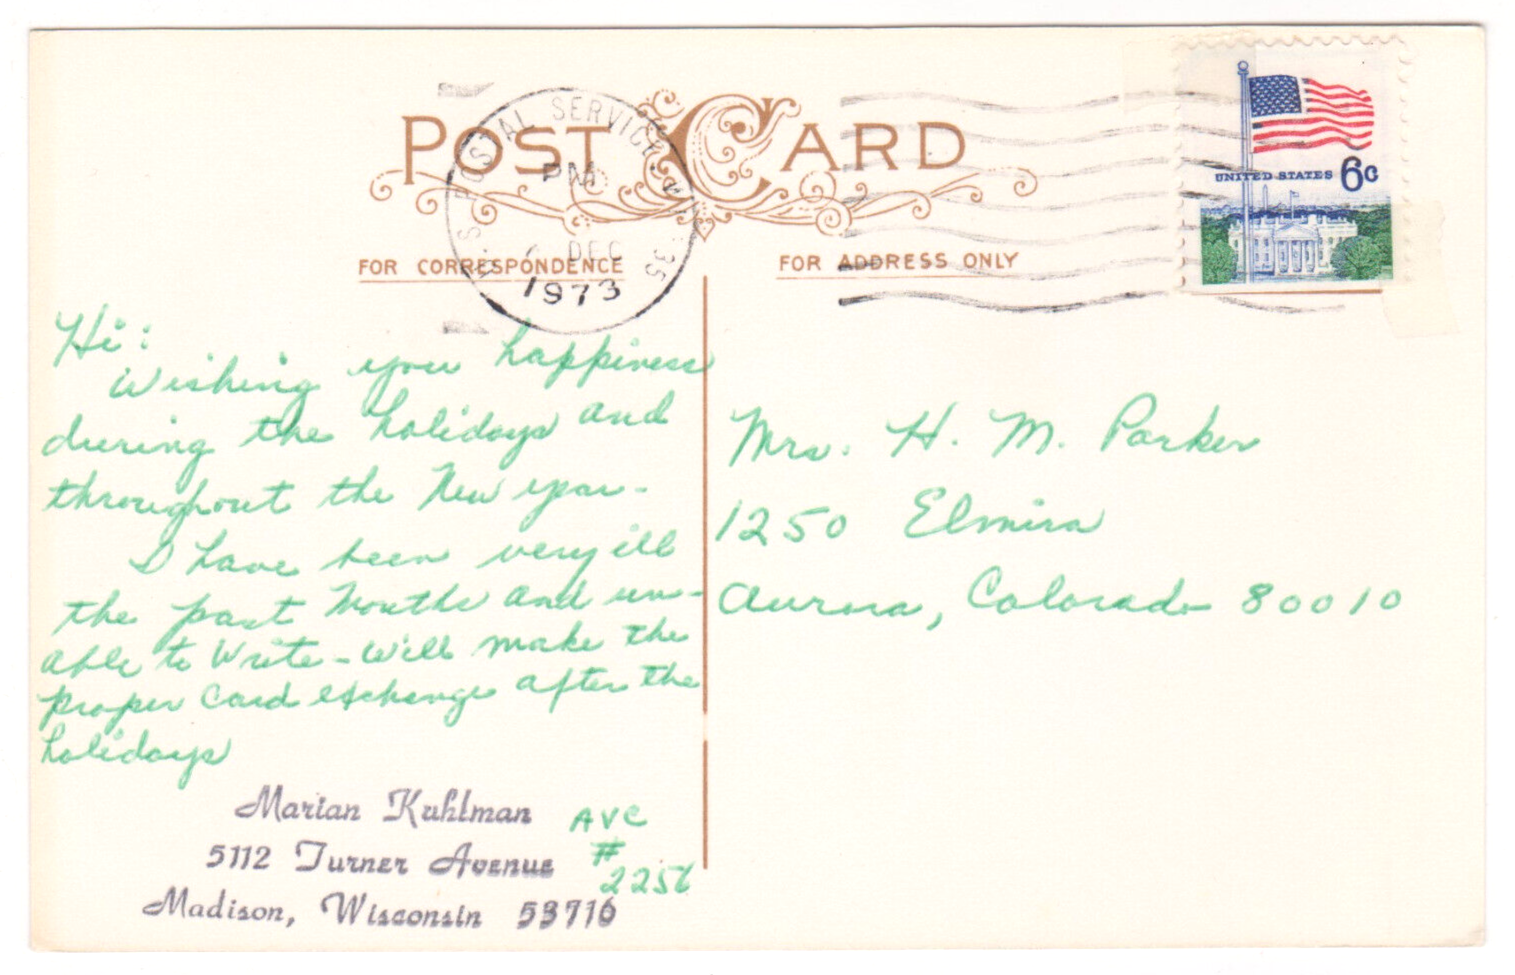 POST CARD
U.S. POSTAL SERVICE
PM
DEC
1973
UNITED STATES 6c
FOR CORRESPONDENCE
FOR ADDRESS ONLY
Hi:
Wishing you happiness
during the holidays and
throughout the New year.
I have been very ill
the past Months and un-
able to Write - Will make the
proper Card exchange after the
holidays
Marian Kuhlman
5112 Turner Avenue
Madison, Wisconsin 53716
AVC
#
2256
Mrs. H. M. Parker
1250 Elmira
Aurora, Colorado 80010